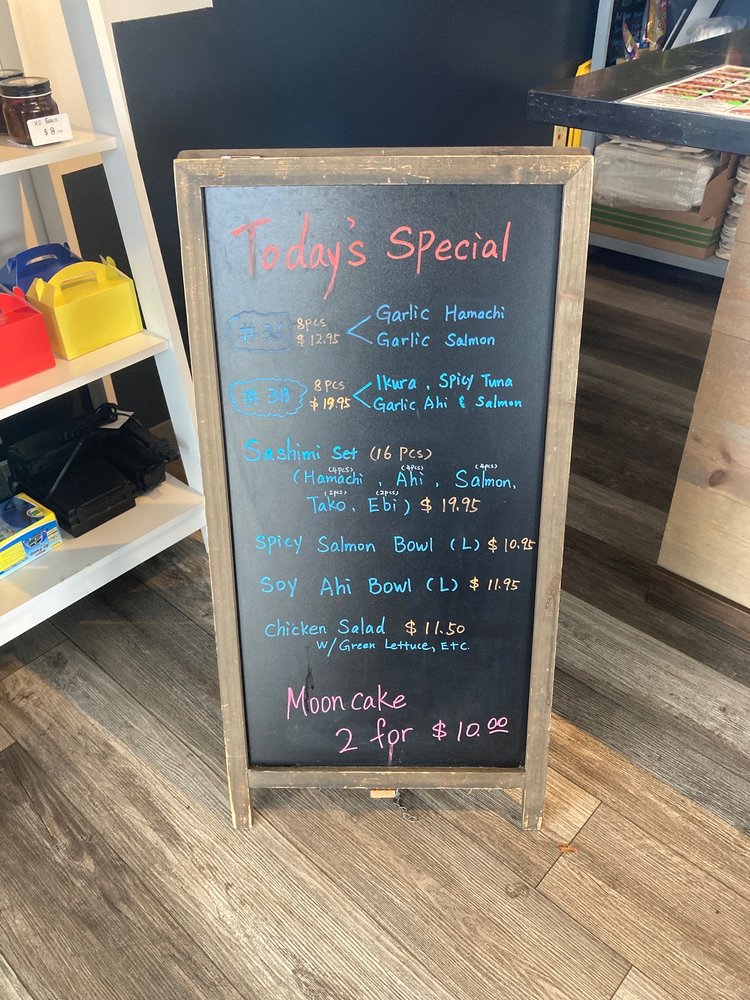 XO Sauce
$8
Today's Special
8pcs
$12.95
Garlic Hamachi
Garlic Salmon
#38
8pcs
$19.95
Ikura, Spicy Tuna
Garlic Ahi & Salmon
Sashimi Set (16 Pcs)
(4pcs) (4pcs) (4pcs)
(Hamachi, Ahi, Salmon,
(2pcs) (2pcs)
Tako, Ebi) $19.95
Spicy Salmon Bowl (L) $10.95
Soy Ahi Bowl (L) $11.95
Chicken Salad $11.50
W/Green Lettuce, Etc.
Moon cake
2 for $10.00